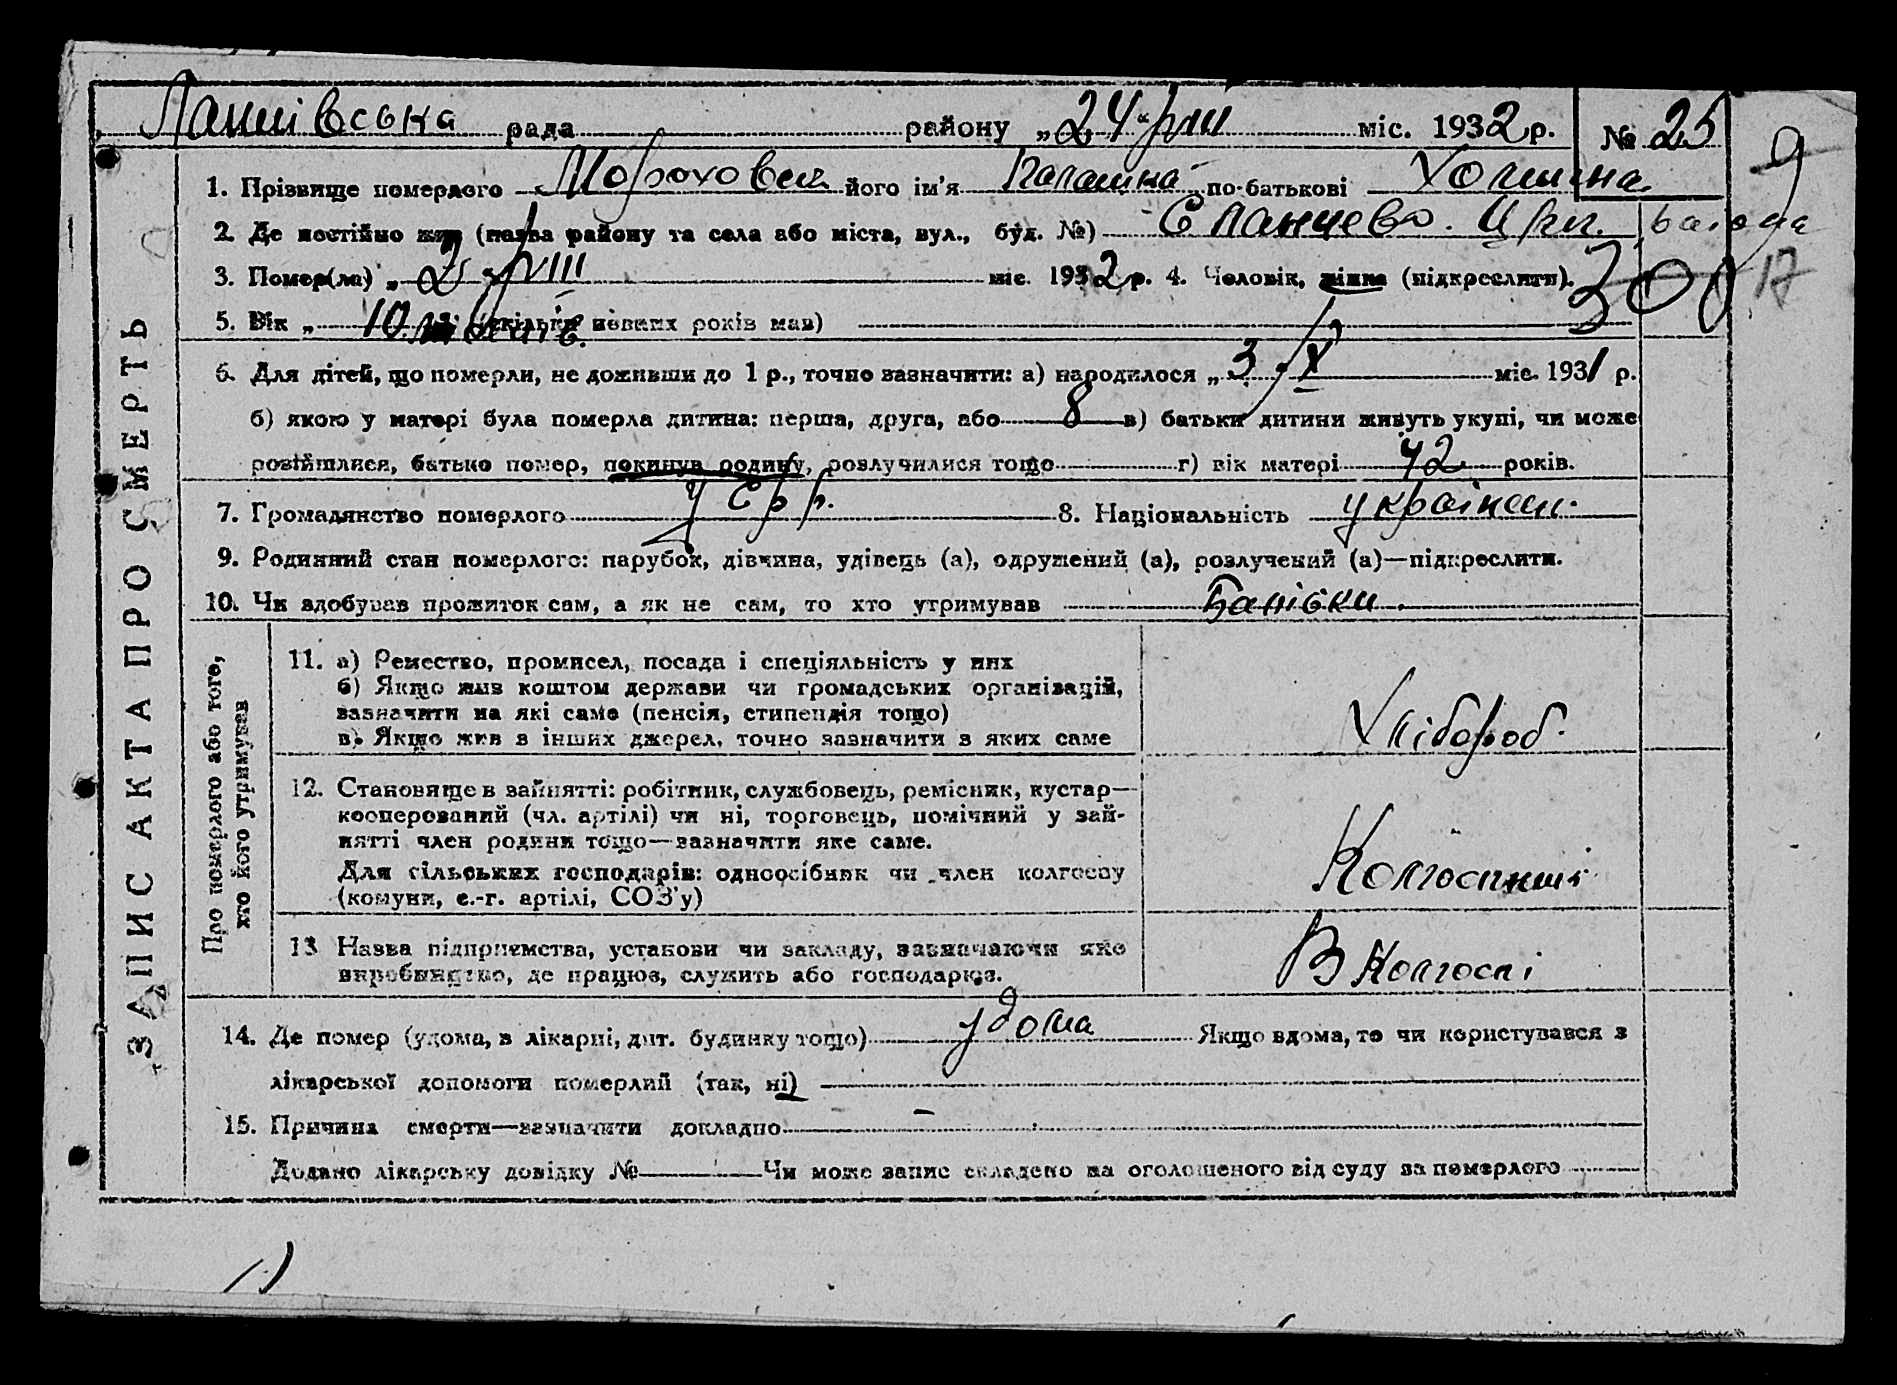 Ланнівська рада району „24“ VIII міс. 1932 р. № 25
9
1. Прізвище померлого його ім'я по-батькові Хомина
2. Де постійно жив (назва району та села або міста, вул., буд. №) С Ланнева.
3. Помер(ла) „2 VIII міс. 1932 р. 4. Чоловік, жінка (підкреслити). 300 17
5. Вік „ 10 місяців. (скільки повних років мав)
6. Для дітей, що померли, не доживши до 1 р., точно зазначити: а) народилося „3 X міс. 1931 р.
б) якою у матері була померла дитина: перша, друга, або 8 в) батьки дитини живуть укупі, чи може
розійшлися, батько помер, покинув родину, розлучилися тощо г) вік матері 42 років.
7. Громадянство померлого УСРР. 8. Національність українськ.
9. Родинний стан померлого: парубок, дівчина, удівець (а), одружений (а), розлучений (а)—підкреслити.
10. Чи здобував прожиток сам, а як не сам, то хто утримував Батьки.
ЗАПИС АКТА ПРО СМЕРТЬ
Про померлого або того,
хто його утримував
11. а) Ремество, промисел, посада і спеціяльність у них
б) Якщо жив коштом держави чи громадських організацій,
зазначити на які саме (пенсія, стипендія тощо)
в) Якщо жив з інших джерел, точно зазначити з яких саме
Хлібороб.
12. Становище в зайнятті: робітник, службовець, ремісник, кустар—
кооперований (чл. артілі) чи ні, торговець, помічний у зай-
нятті член родини тощо—зазначити яке саме.
Для сільських господарів: одноосібник чи член колгоспу
(комуни, с.-г. артілі, СОЗ'у)
Колгоспники
13 Назва підприємства, установи чи закладу, зазначаючи яке
виробництво, де працює, служить або господарює.
В Колгоспі
14. Де помер (удома, в лікарні, дит. будинку тощо) удома Якщо вдома, то чи користувався з
лікарської допомоги померлий (так, ні)
15. Причина смерти—зазначити докладно —
Додано лікарську довідку № Чи може запис складено на оголошеного від суду за померлого